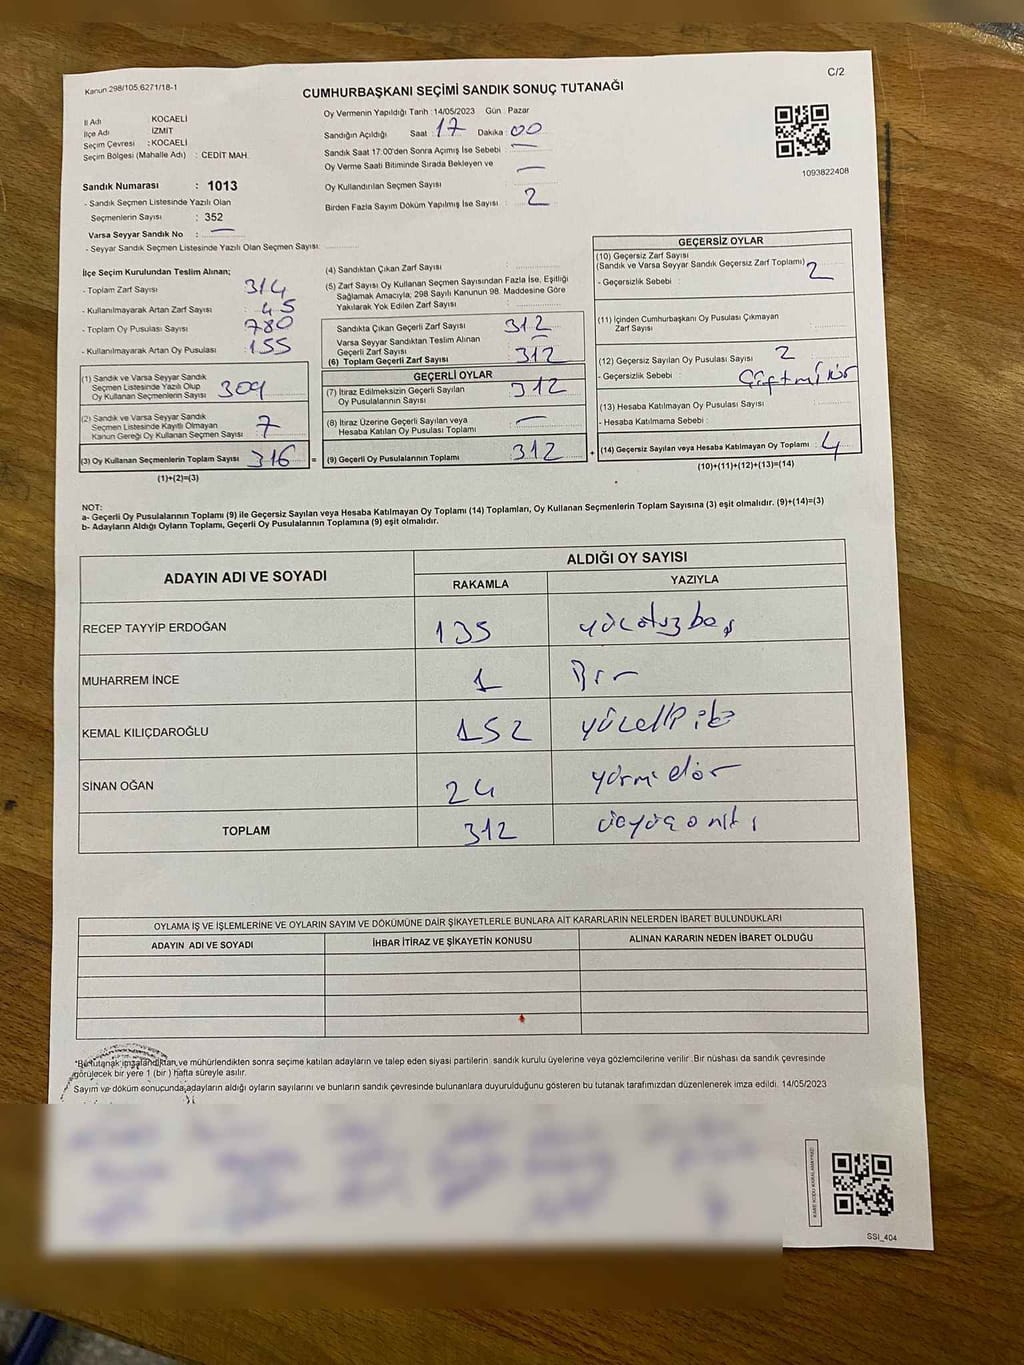 C/2
Kanun 298/105,6271/18-1
CUMHURBAŞKANI SEÇİMİ SANDIK SONUÇ TUTANAĞI
İl Adı : KOCAELİ
İlçe Adı : İZMİT
Seçim Çevresi : KOCAELİ
Seçim Bölgesi (Mahalle Adı) : CEDİT MAH.
Oy Vermenin Yapıldığı Tarih : 14/05/2023 Gün : Pazar
Sandığın Açıldığı Saat : 17 Dakika : 00
Sandık Saat 17:00'den Sonra Açımış İse Sebebi : —
Oy Verme Saati Bitiminde Sırada Bekleyen ve
Oy Kullandırılan Seçmen Sayısı : —
Birden Fazla Sayım Döküm Yapılmış İse Sayısı : 2
1093822408
Sandık Numarası : 1013
- Sandık Seçmen Listesinde Yazılı Olan
Seçmenlerin Sayısı : 352
Varsa Seyyar Sandık No : —
- Seyyar Sandık Seçmen Listesinde Yazılı Olan Seçmen Sayısı:
İlçe Seçim Kurulundan Teslim Alınan;
- Toplam Zarf Sayısı : 314
- Kullanılmayarak Artan Zarf Sayısı : 45
- Toplam Oy Pusulası Sayısı : 780
- Kullanılmayarak Artan Oy Pusulası : 155
(1) Sandık ve Varsa Seyyar Sandık
Seçmen Listesinde Yazılı Olup
Oy Kullanan Seçmenlerin Sayısı : 309
(2) Sandık ve Varsa Seyyar Sandık
Seçmen Listesinde Kayıtlı Olmayan
Kanun Gereği Oy Kullanan Seçmen Sayısı : 7
(3) Oy Kullanan Seçmenlerin Toplam Sayısı : 316
(1)+(2)=(3)
(4) Sandıktan Çıkan Zarf Sayısı :
(5) Zarf Sayısı Oy Kullanan Seçmen Sayısından Fazla İse, Eşitliği
Sağlamak Amacıyla; 298 Sayılı Kanunun 98. Maddesine Göre
Yakılarak Yok Edilen Zarf Sayısı :
Sandıkta Çıkan Geçerli Zarf Sayısı : 312
Varsa Seyyar Sandıktan Teslim Alınan
Geçerli Zarf Sayısı : —
(6) Toplam Geçerli Zarf Sayısı : 312
GEÇERLİ OYLAR
(7) İtiraz Edilmeksizin Geçerli Sayılan
Oy Pusulalarının Sayısı : 312
(8) İtiraz Üzerine Geçerli Sayılan veya
Hesaba Katılan Oy Pusulası Toplamı : —
= (9) Geçerli Oy Pusulalarının Toplamı : 312
GEÇERSİZ OYLAR
(10) Geçersiz Zarf Sayısı
(Sandık ve Varsa Seyyar Sandık Geçersiz Zarf Toplamı) : 2
- Geçersizlik Sebebi :
(11) İçinden Cumhurbaşkanı Oy Pusulası Çıkmayan
Zarf Sayısı :
(12) Geçersiz Sayılan Oy Pusulası Sayısı : 2
- Geçersizlik Sebebi :
(13) Hesaba Katılmayan Oy Pusulası Sayısı :
- Hesaba Katılmama Sebebi :
+ (14) Geçersiz Sayılan veya Hesaba Katılmayan Oy Toplamı : 4
(10)+(11)+(12)+(13)=(14)
NOT:
a- Geçerli Oy Pusulalarının Toplamı (9) ile Geçersiz Sayılan veya Hesaba Katılmayan Oy Toplamı (14) Toplamları, Oy Kullanan Seçmenlerin Toplam Sayısına (3) eşit olmalıdır. (9)+(14)=(3)
b- Adayların Aldığı Oyların Toplamı, Geçerli Oy Pusulalarının Toplamına (9) eşit olmalıdır.
ADAYIN ADI VE SOYADI
ALDIĞI OY SAYISI
RAKAMLA YAZIYLA
RECEP TAYYİP ERDOĞAN 135 yüzotuzbeş
MUHARREM İNCE 1 Bir
KEMAL KILIÇDAROĞLU 152 yüzelli iki
SİNAN OĞAN 24 yirmi dör
TOPLAM 312
OYLAMA İŞ VE İŞLEMLERİNE VE OYLARIN SAYIM VE DÖKÜMÜNE DAİR ŞİKAYETLERLE BUNLARA AİT KARARLARIN NELERDEN İBARET BULUNDUKLARI
ADAYIN ADI VE SOYADI İHBAR İTİRAZ VE ŞİKAYETİN KONUSU ALINAN KARARIN NEDEN İBARET OLDUĞU
*Bu tutanak imzalandıktan ve mühürlendikten sonra seçime katılan adayların ve talep eden siyasi partilerin sandık kurulu üyelerine veya gözlemcilerine verilir .Bir nüshası da sandık çevresinde
görülecek bir yere 1 (bir ) hafta süreyle asılır.
Sayım ve döküm sonucunda adayların aldığı oyların sayılarını ve bunların sandık çevresinde bulunanlara duyurulduğunu gösteren bu tutanak tarafımızdan düzenlenerek imza edildi. 14/05/2023
SSI_404